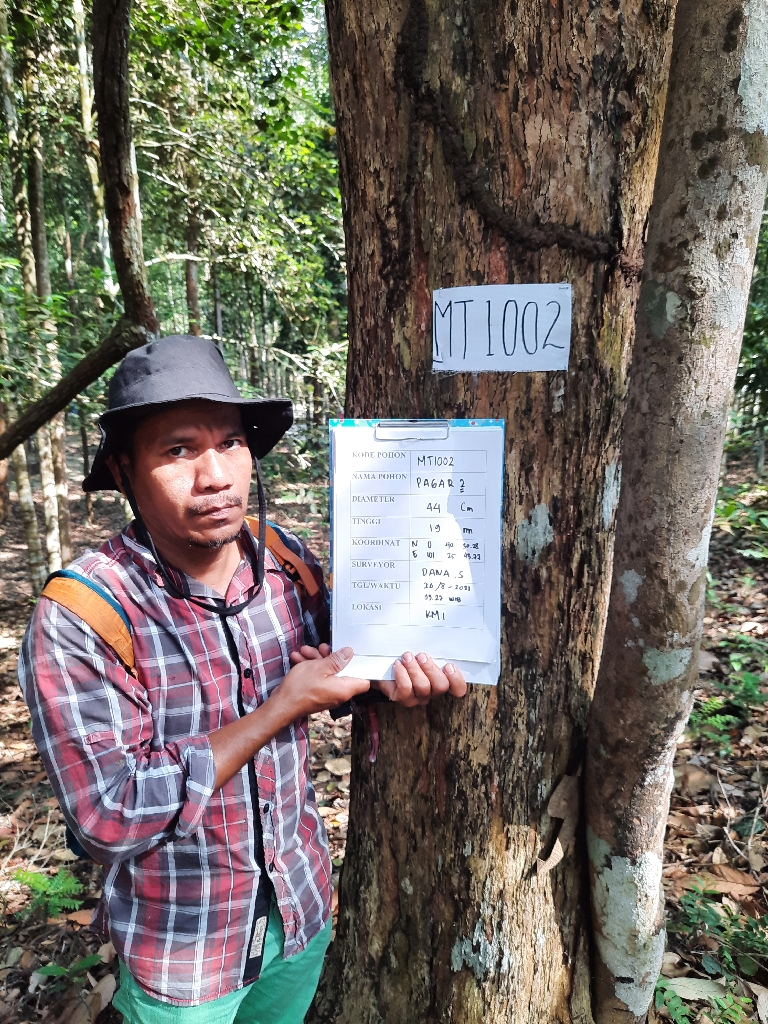 MT1002
KODE POHON MT1002
NAMA POHON PAGAR2
DIAMETER 44 Cm
TINGGI 19 m
KOORDINAT N 0
E 101 25
SURVEYOR DANA.S
TGL/WAKTU
WIB
LOKASI KM1